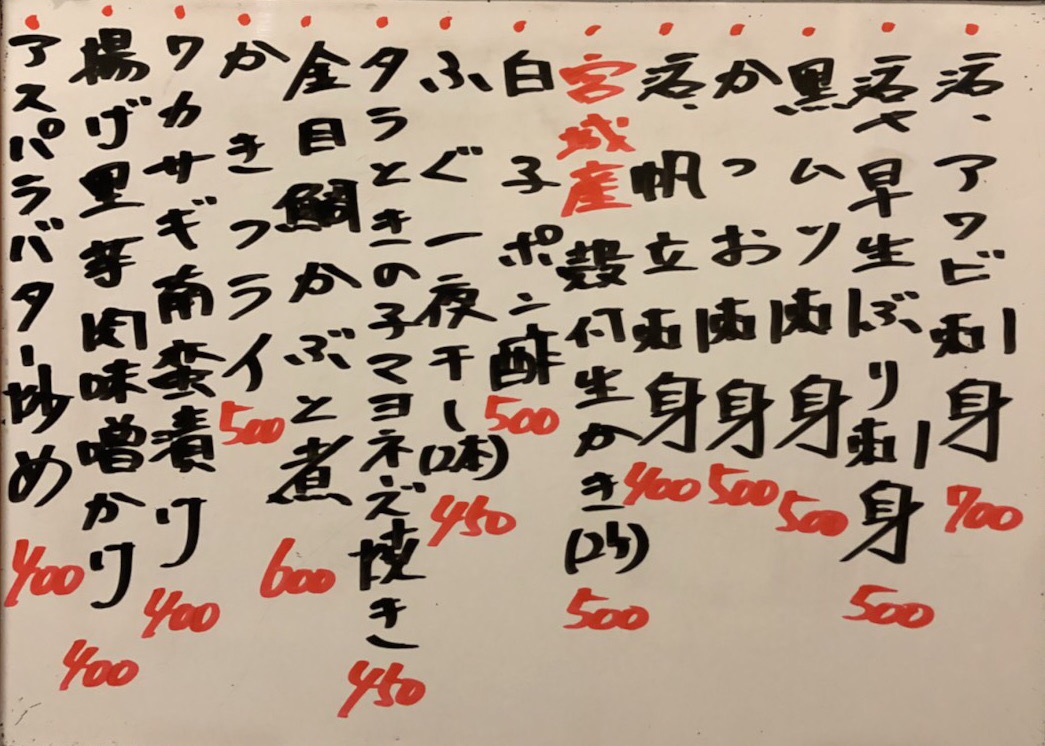 活、アワビ刺身 700
活〆早生ぶり刺身 500
黒ムツ刺身 500
かつお刺身 500
活、帆立刺身 400
宮城産殻付生かき(2ケ) 500
白子ポン酢 500
ふぐ一夜干し(2本) 450
タラときの子マヨネーズ焼き 450
金目鯛かぶと煮 600
かきフライ 500
ワカサギ南蛮漬け 400
揚げ里芋肉味噌かけ 400
アスパラバター炒め 400